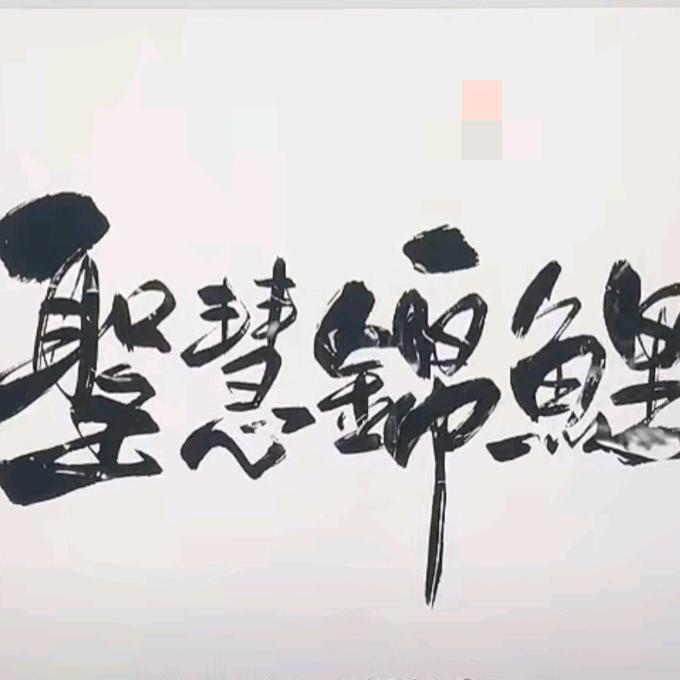 聖慧錦鯉